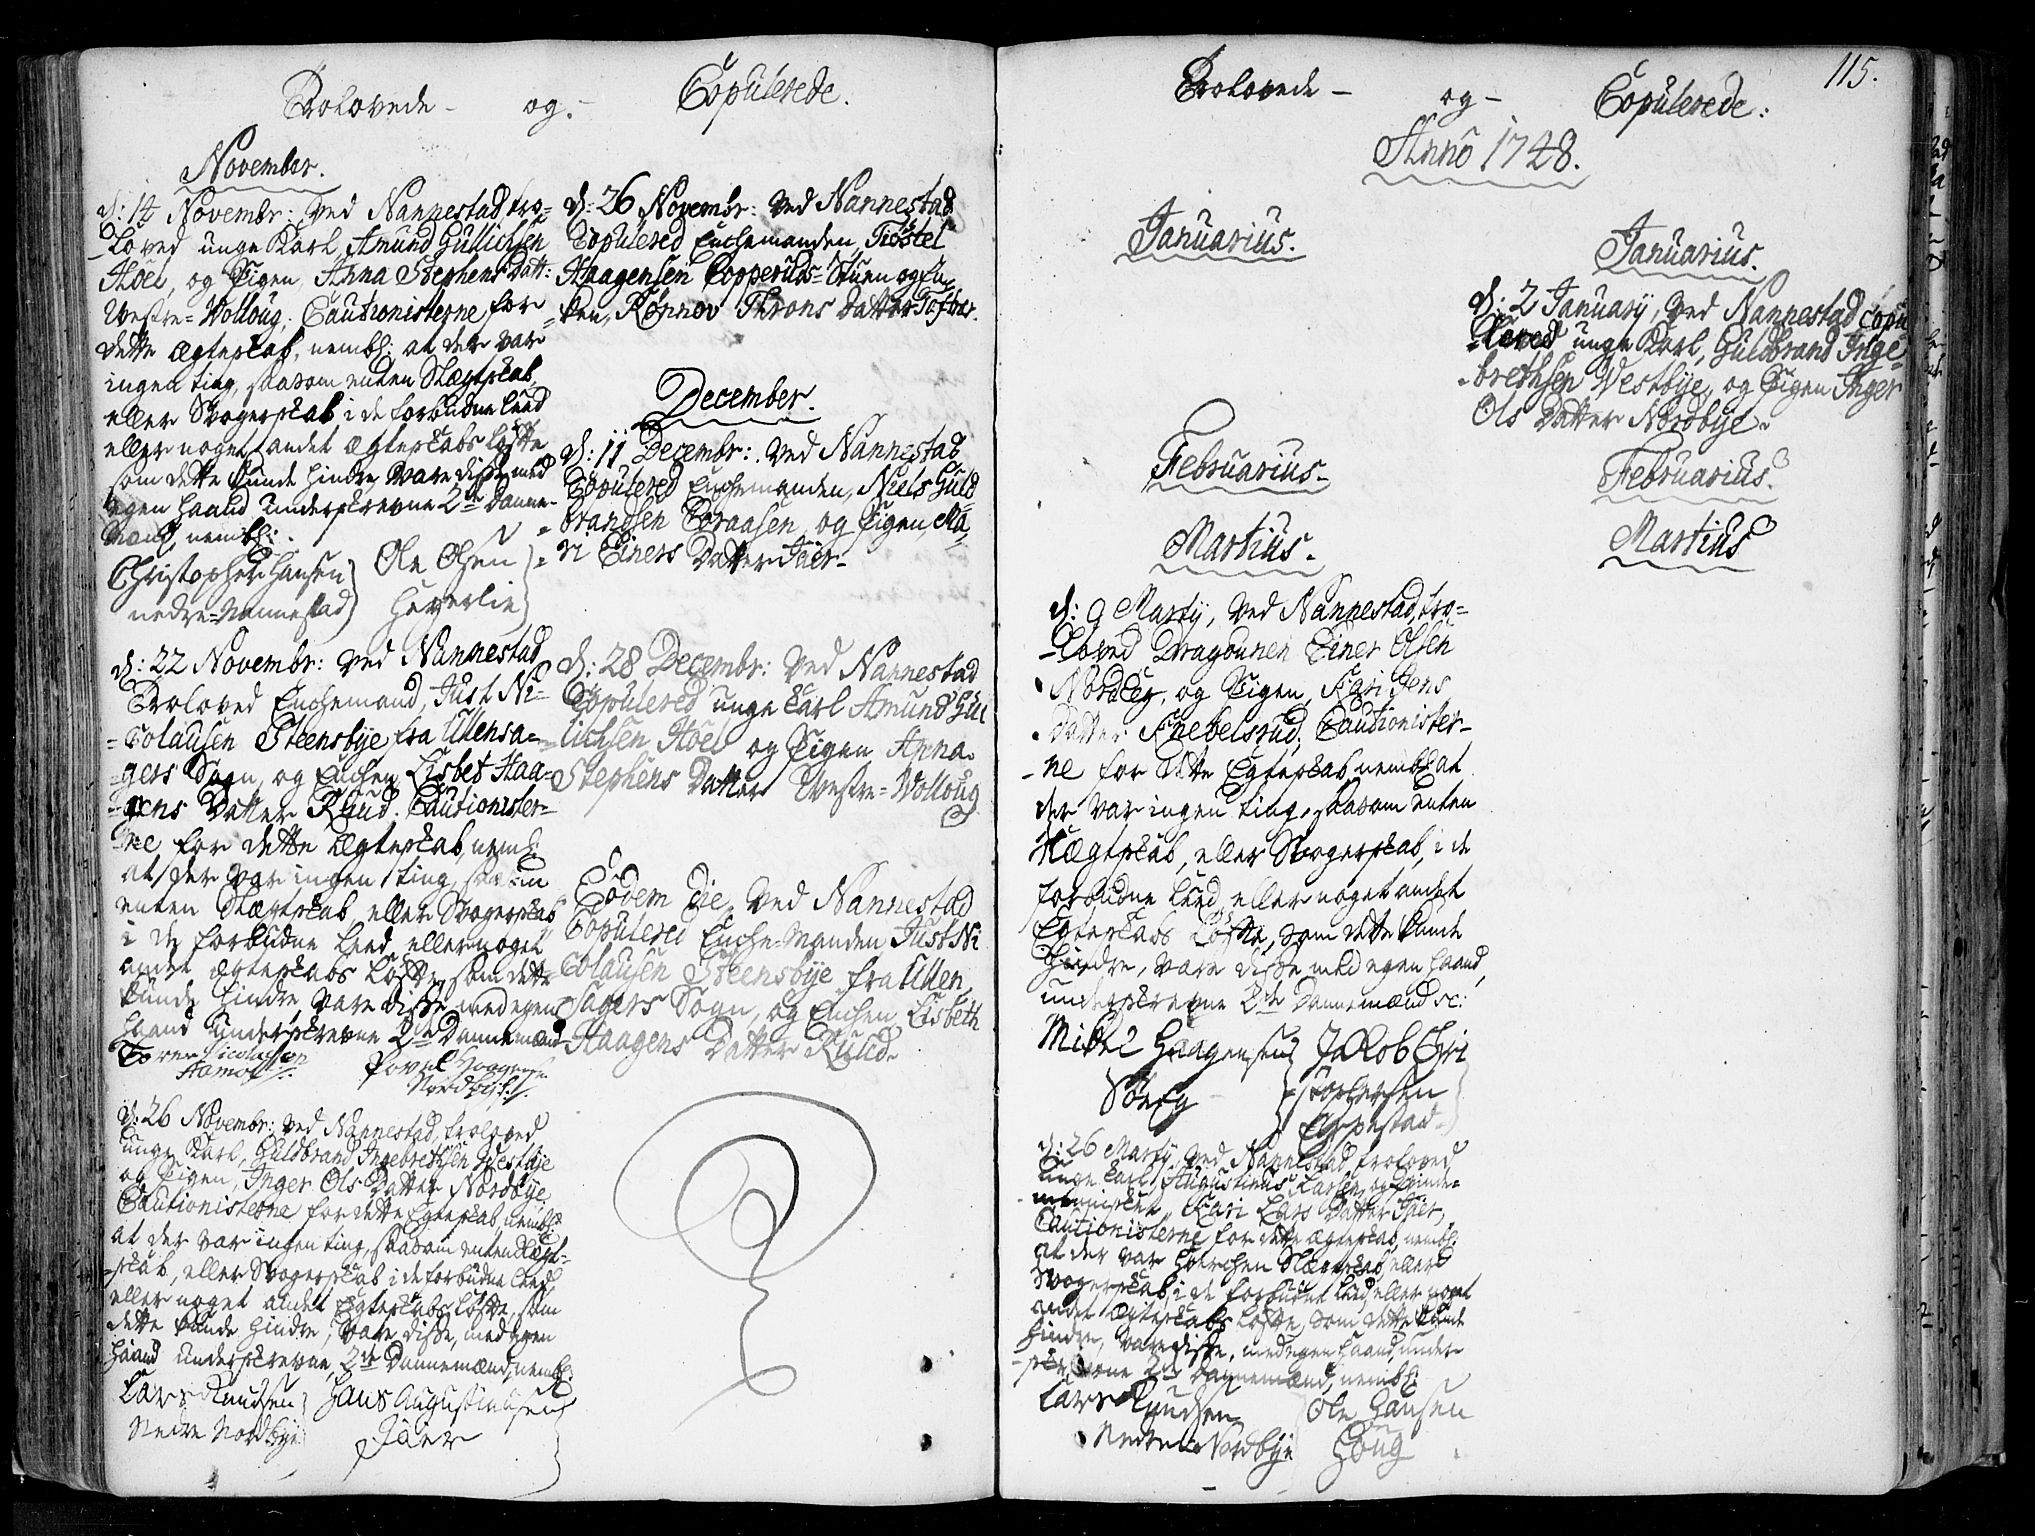 Trolovede - og - Copulerede.
November.
d: 14 Novembr: ved Nannestad tro=
loved unge Karl, Amund Gullichsen
Hoel, og Pigen, Anna Stephens Datt:
Westre=Wolloug; Cautionisterne for
dette ægteskab, nembl: at der var
ingen ting, saasom enten Slægtskab,
eller Svogerskab i de forbudne leed
eller noget andet ægteskabs løfte
som dette kunde hindre, vare disse med
egen haand underskrevne 2de Danne=
Mænd, nembl:
Christopher Hansen
nedre=Nannestad
Ole Olsen
Heverlie
d: 22 Novembr: ved Nannestad
Troloved Enchemand, Just Ni=
=colausen Steensbye fra Ullensa=
=gers Sogn, og Enchen Lisbet Haa=
=gens Datter Ruud. Cautionister=
ne for dette Ægteskab, nembl:
at der var ingen ting, saasom
enten Slægtskab, eller Svogerskab
i de forbudne leed, eller noget
andet ægteskabs løfte, som dette
kunde hindre, vare disse med egen
haand underskrevne 2de Dannemænd
Torer Nicolausen
Aamot
Povel Haagensen
Nordbye
d: 26 Novembr: ved Nannestad, troloved
unge Karl, Guldbrand Ingebrethsen Westbye
og Pigen, Inger Ols Datter Nordbye.
Cautionisterne for dette Egteskab, nembl:
at der var ingen ting, saasom enten Slægt=
=skab, eller Svogerskab i de forbudne leed,
eller noget andet Egteskabs løfte, som
dette kunde hindre, vare disse, med egen
haand underskrevne, 2de Dannemænd, nembl:
Lars Knudsen
Nedre Nordbye
Hans Augustinusen
Jaer
d: 26 Novembr: ved Nannestad
Copulered Enchemanden, Tiøstel
Haagensen Coperuds=Stuen og En=
ken, Rønnov Throns Datter Tofver.
December.
d: 11 Decembr: ved Nannestad
Copulered Enchemanden, Niels Guld
brandsen Braaten, og Pigen, Ma=
ri Einers Datter Jaer.
d: 28 Decembr: ved Nannestad
Copulered unge Karl Amund Gul
lichsen Hoel og Pigen Anna
Stephens Datter Westre=Wolloug
Eodem Die, ved Nannestad
Copulered Enche=Manden Just Ni
colausen Steensbye fra Ullen
sagers Sogn, og Enchen Lisbeth
Haagens Datter Ruud.
115.
Trolovede - og - Copulerede:
Anno 1748.
Januarius.
Februarius.
Martius.
d: 9 Martÿ, ved Nannestad, tro=
loved Dragounen Einer Olsen
Nordbye, og Pigen, Kari Jens
Datter Knebelsrud; Cautionister=
ne for dette Egteskab nembl at
der var ingen ting, saasom enten
Slægteskab, eller Svogerskab, i de
forbudne leed, eller noget andet
Egteskabs Løfte, som dette kunde
hindre, vare disse med egen haand,
underskrevne 2de Dannemænd sc:
Mikel Haagensen
Søeby
Jakob Chri
=stophersen
Eppestad
d: 26 Martÿ, ved Nannestad, troloved
unge Karl, Augustinus Larsen, og Qvinde=
mennisket, Kari Lars Datter Jaer,
Cautionisterne for dette ægteskab, nembl:
at der var hverchen Slægtskab, eller
Svogerskab, i de forbudne leed, eller noget
andet ægteskabs Løfte, som dette kunde
hindre, vare disse, med egen haand, under
=skrevne 2de Dannemænd, nembl:
Lars Knudsen
Nedre Nordbye
Ole Hansen
Houg
Januarius.
d: 2 Januarÿ, ved Nannestad copu
lered unge Karl, Guldbrand Inge
brethsen Westbye, og Pigen Inger
Ols Datter Nordbye.
Februarius.
Martius